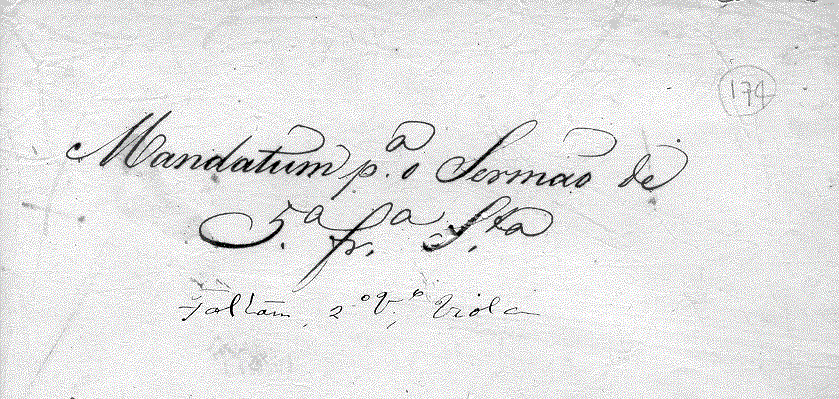 174
Mandatum p.ª o Sermão de
5.ª fr.ª S.ta
Faltam, 2º v.º Viola